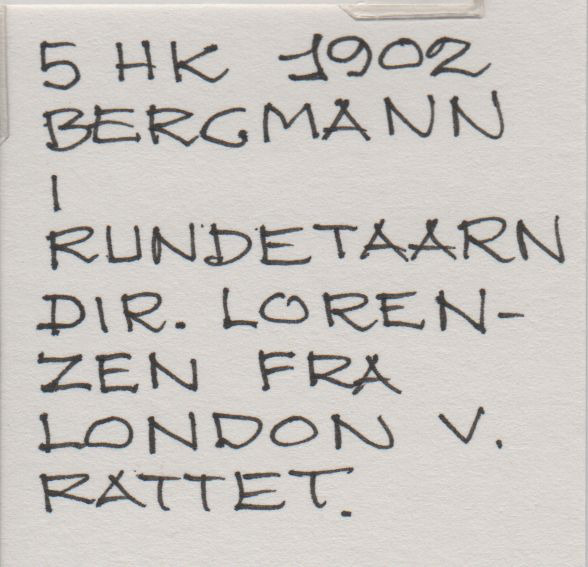 5 HK 1902
BERGMANN
I
RUNDETAARN
DIR. LOREN-
ZEN FRA
LONDON V.
RATTET.